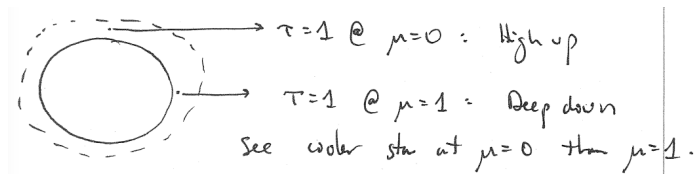 τ=1 @ μ=0 : High up
τ=1 @ μ=1 : Deep down
See cooler star at μ=0 than μ=1.